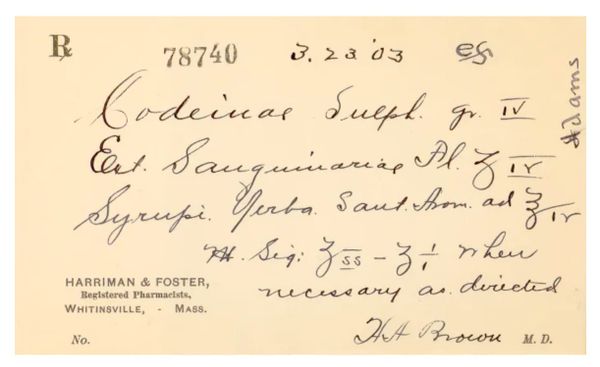 ℞ 78740 3.23'03
Adams
Codeinae Sulph. gr. IV
Ext. Sanguinariae Fl. ʒ IV
Syrupi. Yerba. Sant. Arom. ad ℥ IV
M. Sig: ʒ ss - ʒ i when
necessary as directed
HARRIMAN & FOSTER,
Registered Pharmacists,
WHITINSVILLE, - MASS.
HA Brown M. D.
No.